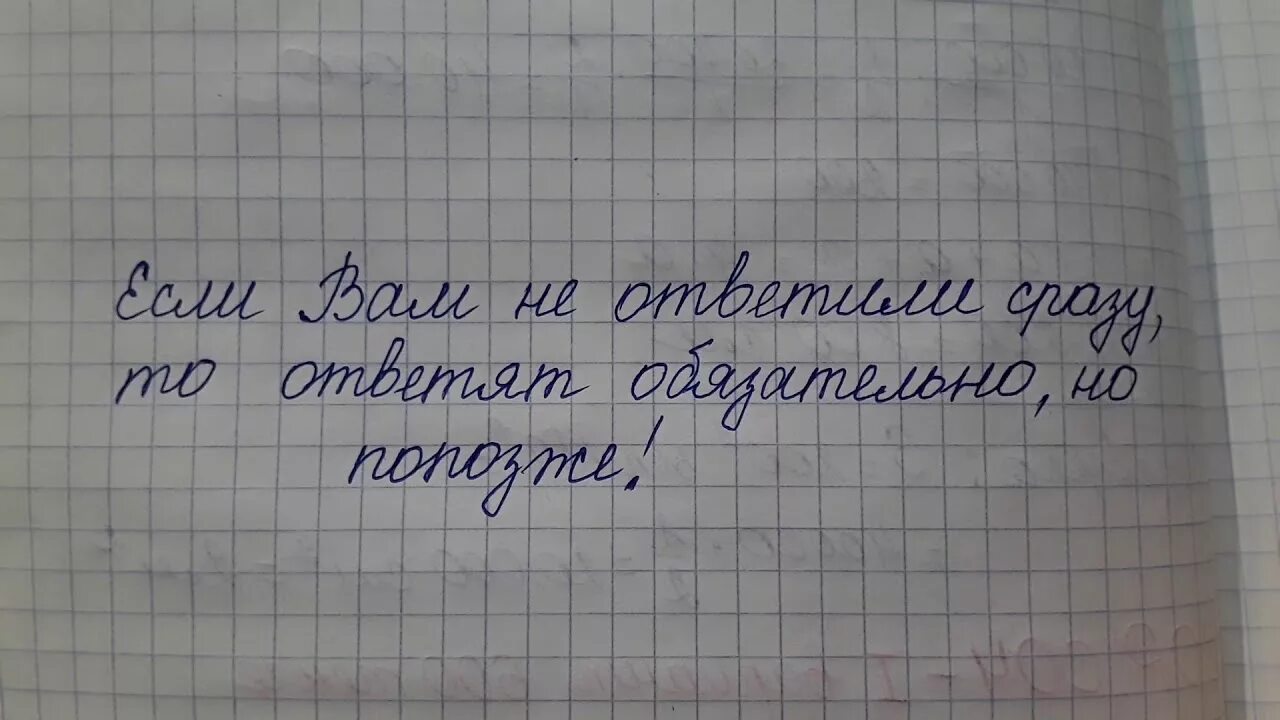 Если Вам не ответили сразу,
то ответят обязательно, но
попозже!